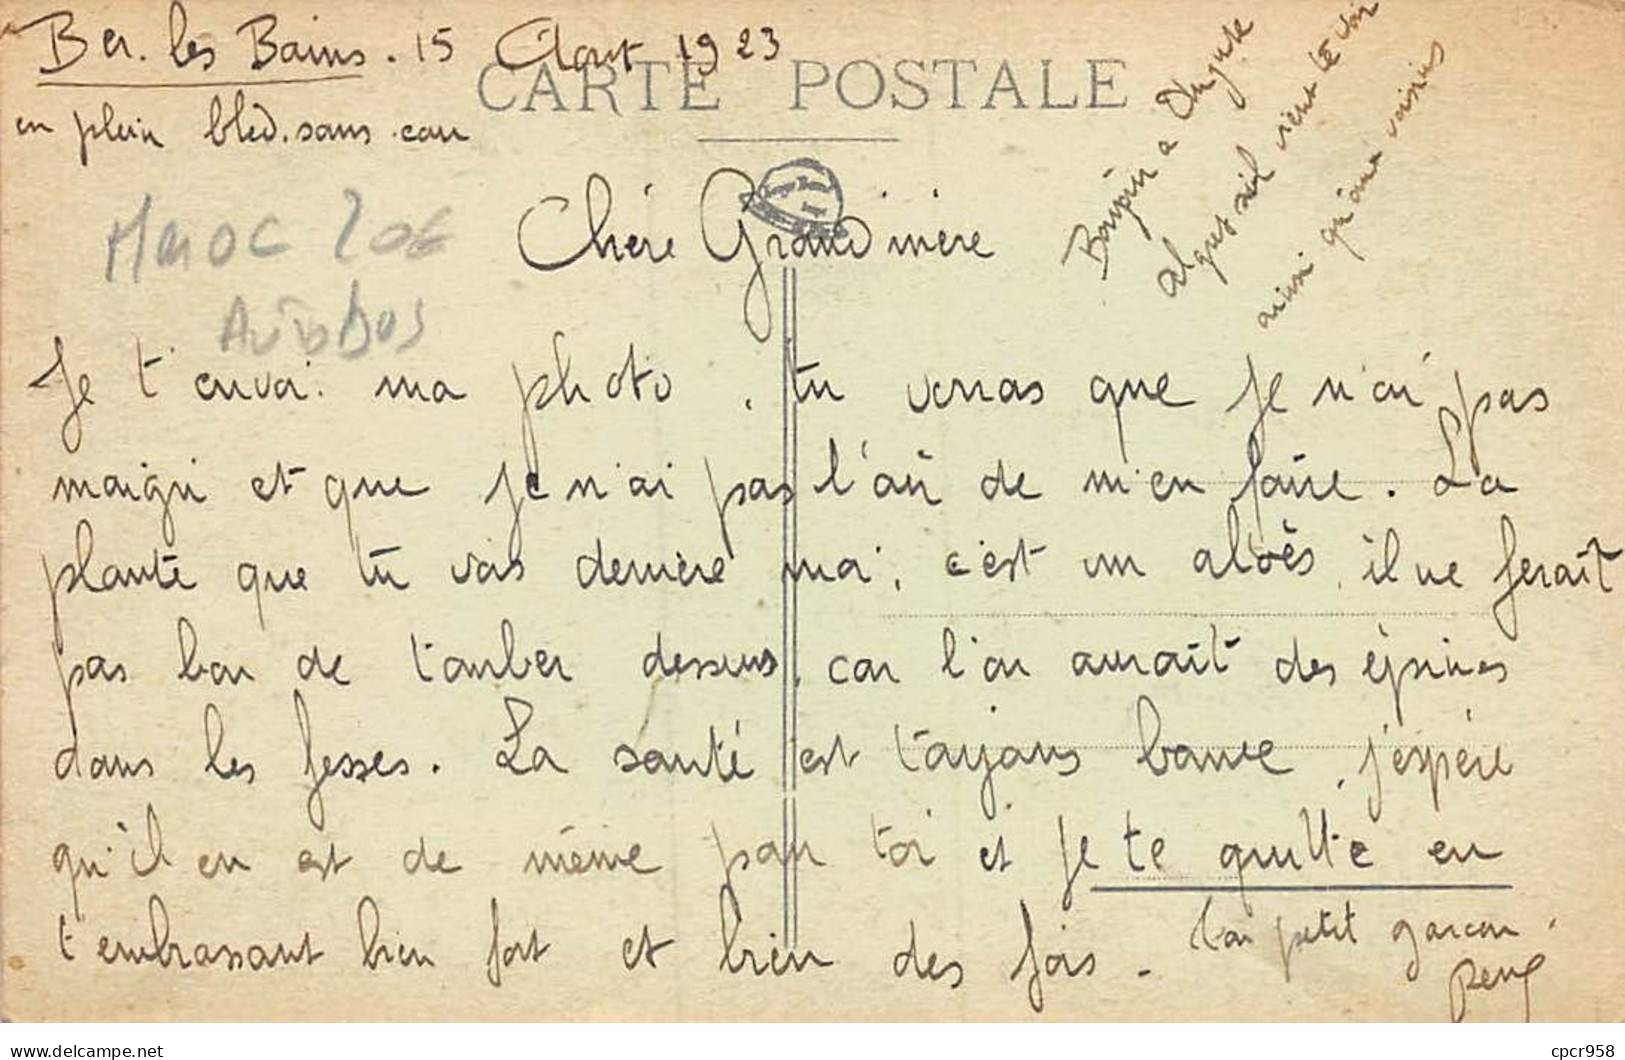 Ber. les Bains. 15 Aout 1923
CARTE POSTALE
en plein bled. sans eau
Maroc 20€
Chère Grand mère
Bonjour a
s'il vient te voir
ainsi qu'aux voisins
Je t'envoi ma photo, tu verras que je n'ai pas
maigri et que je n'ai pas l'air de m'en faire. La
plante que tu vois derrière moi, c'est un aloès, il ne ferait
pas bon de tomber dessus, car l'on aurait des épines
dans les fesses. La santé est toujours bonne, j'espère
qu'il en est de même pour toi et je te quitte en
t'embrassant bien fort et bien des fois - Ton petit garçon.
René
delcampe.net
cpcr958